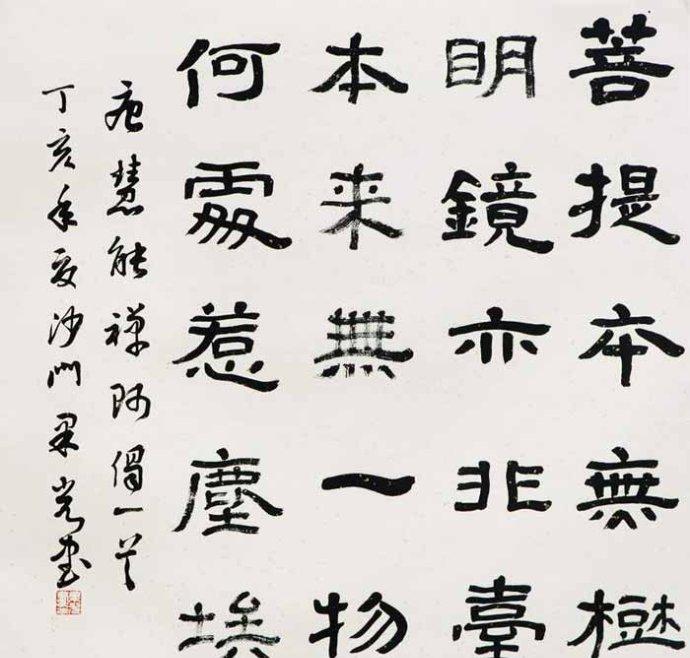 菩提本無樹
明鏡亦非臺
本来無一物
何處惹塵埃
唐慧能禅师偈一首
丁亥年夏沙門书